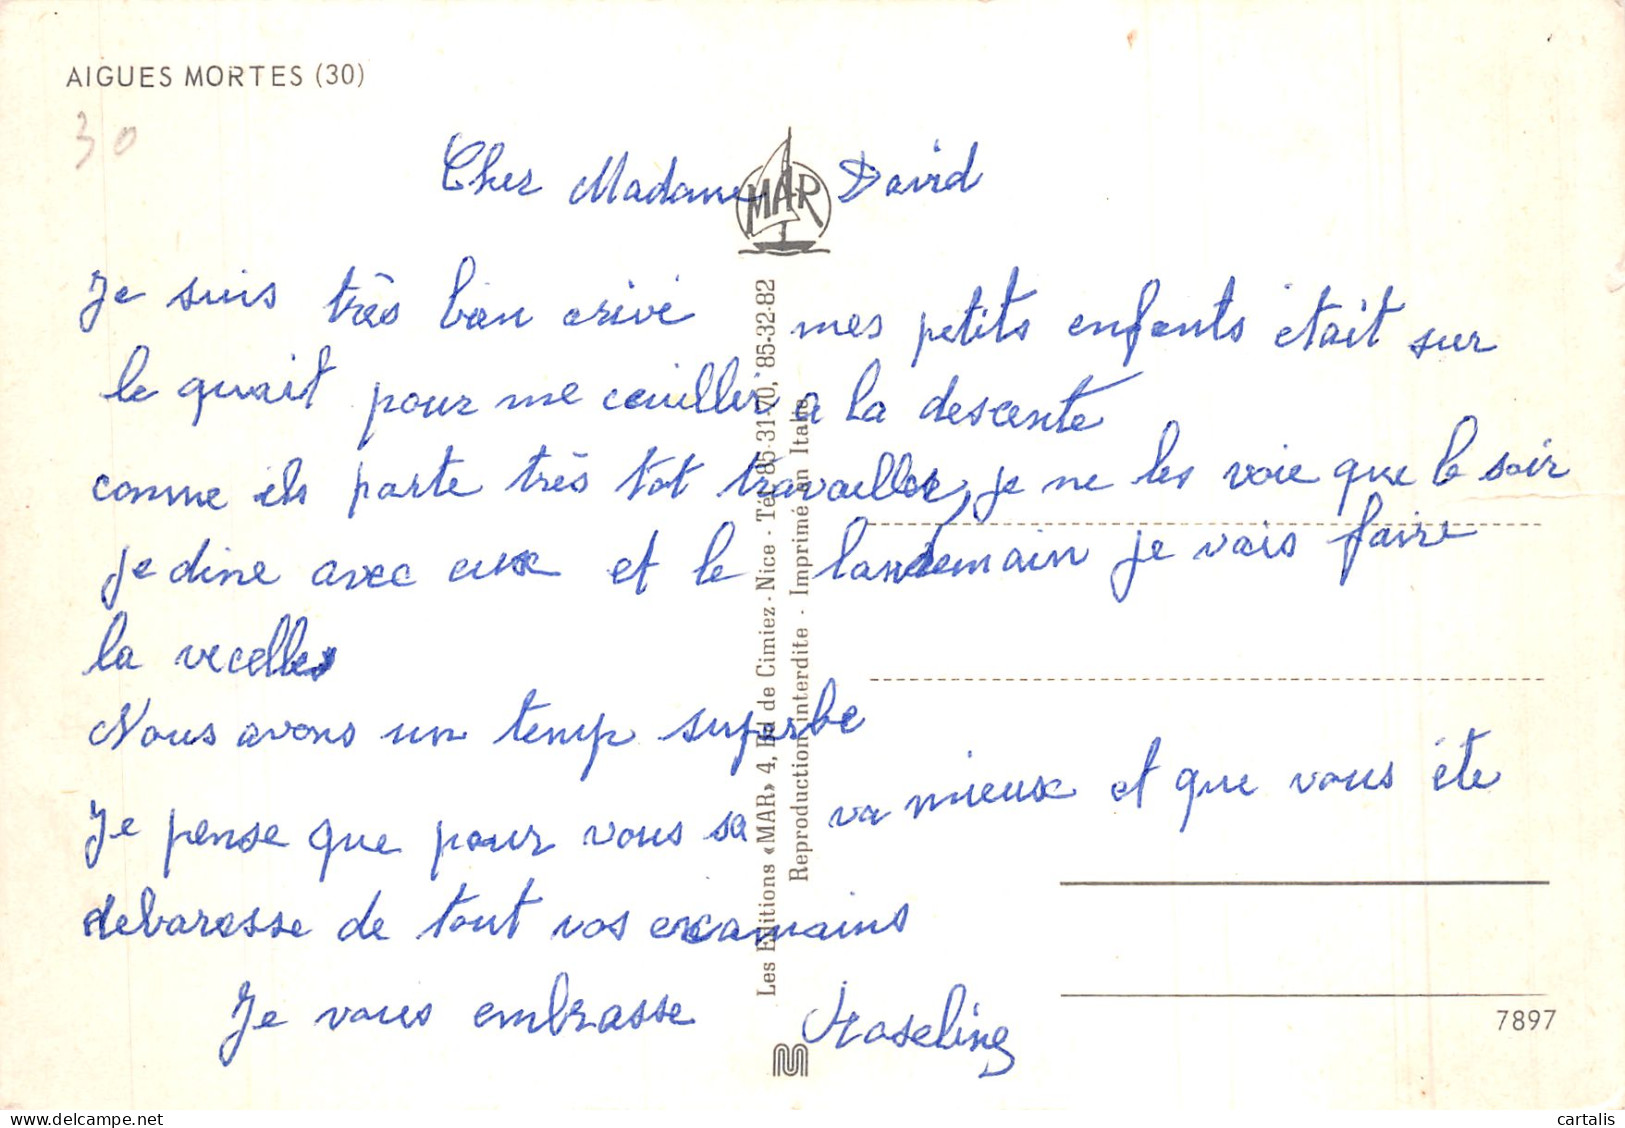 AIGUES MORTES (30)
30
Cher Madame David
MAR
Je suis très bien arivé mes petits enfants était sur
le quait pour me ceuiller a la descente
comme ils parte très tot travailler, je ne les voie que le soir
je dine avec eux et le landemain je vais faire
la vecelles
Nous avons un temp superbe
Je pense que pour vous sa va mieux et que vous éte
debaresse de tout vos examains
Je vous embrasse
Les Editions «MAR» 4, Bd de Cimiez - Nice - Tél. 85-31-70, 85-32-82
Reproduction interdite - Imprimé en Italie
7897
cartalis